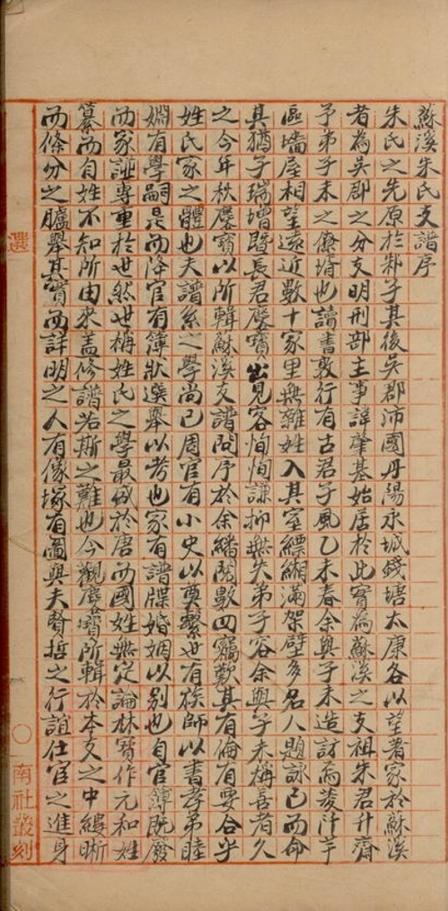 蘇溪朱氏支譜序
朱氏之先原於邾子其後吳郡沛國丹陽永城錢塘太康各以望著家於蘇溪
者為吳郡之分支明刑部主事諱肇基始居於此實為蘇溪之支祖朱君升齋
予弟子未之僚壻也讀書敦行有古君子風乙未春余與子未造訪焉菱汀芋
區墻屋相望遠近數十家里無雜姓入其室縹緗滿架壁多名人題詠已而命
其猶子瑞增暨長君塵寶出見容恂恂謙抑無失弟子容余與子未稱善者久
之今年秋塵寶以所輯蘇溪支譜問序於余繙閱數四竊歎其有倫有要合乎
姓氏家之體也夫譜系之學尚已周官有小史以奠繫世有族師以書孝弟睦
婣有學嗣是而降官有簿狀選舉以考也家有譜牒婚姻以別也自官簿既廢
而家諩專重於世然世稱姓氏之學最𢧵於唐而國姓無定論林寶作元和姓
纂而自姓不知所由來蓋修譜若斯之難也今觀塵寶所輯於本支之中縷晰
而條分之臚舉其實而詳明之人有像塚有圖與夫賢哲之行誼仕宦之進身
選
〇 南社叢刻